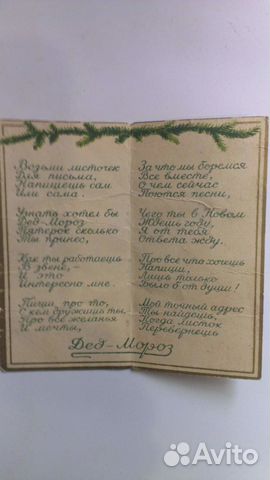 Возьми листочек
Для письма,
Напишешь сам
Или сама.
Узнать хотел бы
Дед-Мороз
Пятерок сколько
Ты принес,
Как ты работаешь
В звене, —
И это
Интересно мне.
Пиши, про то,
С кем дружишь ты,
Про все желанья
И мечты,
За что мы боремся
Все вместе,
О чем сейчас
Поются песни,
Чего ты в Новом
Ждешь году,
Я от тебя
Ответа жду.
Про все что хочешь
Напиши,
Лишь только
Было б от души!
Мой точный адрес
Ты найдешь,
Когда листок
Перевернешь
Дед-Мороз
Avito